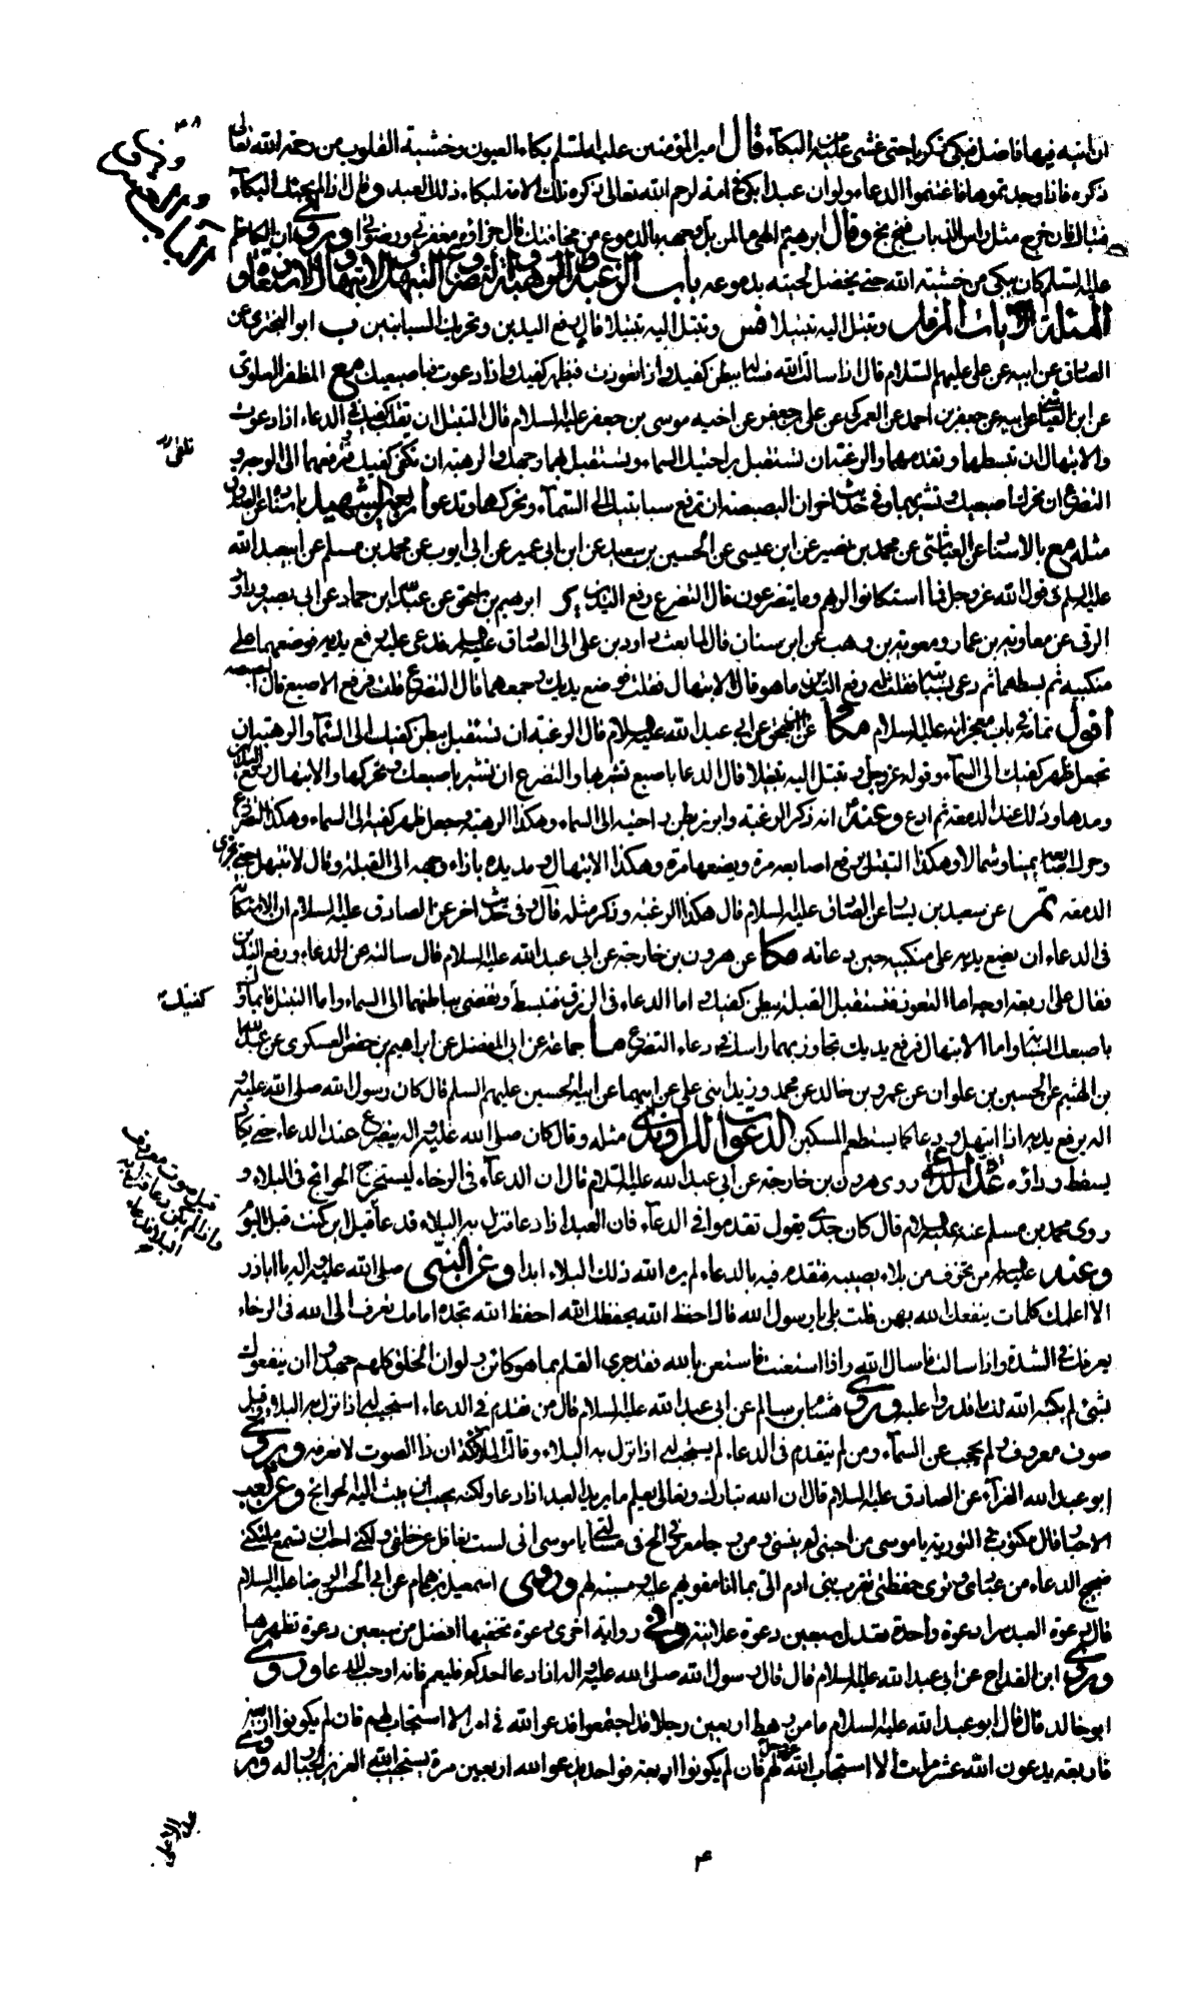 ان انتبه فيها فاضل فبكى فكر باحتى غشى عليه من البكآء قال امير المؤمنين عليه السلم بكاء العيون وخشية القلوب من رحمة الله تعالى
ذكره فاذا وجدتموها فاغتنموا الدعاء ولو ان عبدا بكى في امة لرحم الله تعالى ذكره تلك الامة لبكاء ذلك العبد وقال اذا لم يجئك البكآء
فتباك فان خرج مثل راس الذباب فبخ بخ وقال ابرهيم الهي ما لمن بل وجهه بالدموع من مخافتك قال جزاؤه مغفرتي ورضواني وروي ان الكاظم
عليه السلم كان يبكي من خشية الله حتى يخضل لحيته بدموعه باب الرغبة والرهبة والتضرع والتبتل والابتهال والاستعاذة و
المسئلة الآيات المزمل وتبتل اليه تبتيلا فس وتبتل اليه تبتيلا قال رفع اليدين وتحريك السبابتين ب ابو البختري عن
الصادق عن ابيه عن علي عليهم السلام قال اذا سالت الله فسئله ببطن كفيك واذا تعوذت فبظهر كفيك واذا دعوت فباصبعيك مع المظفر العلوي
عن ابن العياشي عن ابيه عن جعفر بن احمد عن العمركي عن علي بن جعفر عن اخيه موسى بن جعفر عليه السلام قال التبتل ان تقلب كفيك في الدعاء اذا دعوت
والابتهال ان تبسطهما وتقدمهما والرغبة ان تستقبل براحتيك السماء وتستقبل بهما وجهك والرهبة ان تكفي كفيك فترفعهما الى الوجه و
التضرع ان تحرك اصبعيك وتشير بهما وفي حديث اخر ان البصبصة ان ترفع سبابتيك الى السمآء وتحركهما وتدعو
مثله مع بالاسناد عن العياشي عن محمد بن نصير عن ابن عيسى عن الحسين بن سعيد عن ابن ابي عمير عن ابي ايوب عن محمد بن مسلم عن ابي عبد الله
عليه السلم في قول الله عز وجل فما استكانوا لربهم وما يتضرعون قال التضرع رفع اليدين ير ابرهيم بن اسحق عن عبد الله بن حماد عن ابي بصير وداود
الرقي عن معاوية بن عمار ومعوية بن وهب عن ابن سنان قال لما بعث داود بن علي الى الصادق عليه السلم فدعى عليه رفع يديه فوضعهما على
منكبيه ثم بسطهما ثم دعى بسبابته فقلت له رفع اليدين ما هو قال الابتهال فقلت فوضع يديك وجمعهما قال التضرع قلت فرفع الاصبع قال البصبصة
اقول تمامه في باب معجزاته عليه السلام مكا عن ابي اسحق عن ابي عبد الله عليه السلام قال الرغبة ان تستقبل ببطن كفيك الى السمآء والرهبة ان
تجعل ظهر كفيك الى السمآء وقوله عز وجل وتبتل اليه تبتيلا قال الدعا باصبع تشير بها والتضرع ان تشير باصبعك وتحركها والابتهال رفع اليدين
ومدها وذلك عند الدمعة ثم ادع وعنه انه ذكر الرغبة وابرز بطن راحتيه الى السماء وهكذا الرهبة وجعل ظهر كفيه الى السماء وهكذا التضرع
وحرك اصابعه يمينا وشمالا وهكذا التبتل يرفع اصابعه مرة ويضعها مرة وهكذا الابتهال ومد يده بازاء وجهه الى القبلة وقال لا تبتهل حتى تجري
الدمعة تم عن سعيد بن يسار عن الصادق عليه السلام قال هكذا الرغبة وذكر مثله قال وفي حديث اخر عن الصادق عليه السلام ان الاستكانة
في الدعاء ان يضع يديه على منكبيه حين دعائه مكا عن هرون بن خارجة عن ابي عبد الله عليه السلام قال سالته عن الدعاء ورفع اليدين
فقال على اربعة اوجه اما التعوذ فتستقبل القبلة ببطن كفيك واما الدعاء في الرزق فتبسط وتفضي بباطنهما الى السماء واما التبتل فايماؤك
باصبعك السبابة واما الابتهال فرفع يديك تجاوز بهما راسك في دعاء التضرع ما جماعة عن ابي المفضل عن ابراهيم بن حفص العسكري عن عبيد الله
بن الهثيم عن الحسين بن علوان عن عمرو بن خالد عن محمد وزيد ابني علي عن ابيهما عن ابيه الحسين عليهم السلم قال كان رسول الله صلى الله عليه و
اله يرفع يديه اذا ابتهل ودعا كما يستطعم المسكين الدعوات للراوندي مثله وقال كان صلى الله عليه واله يتضرع عند الدعاء حتى يكاد
يسقط رداؤه عدة الداعي روى هرون بن خارجة عن ابي عبد الله عليه السلام قال ان الدعآء في الرخاء ليستخرج الحوائج في البلاء و
روى محمد بن مسلم عنه عليه السلام قال كان جدي يقول تقدموا في الدعآء فان العبد اذا دعا فنزل به البلاء فدعا قيل اين كنت قبل اليوم
وعنه عليه السلم من تخوف من بلاء يصيبه فتقدم فيه بالدعاء لم يره الله ذلك البلاء ابدا وعن النبي صلى الله عليه واله يا اباذر
الا اعلمك كلمات ينفعك الله بهن قلت بلى يا رسول الله قال احفظ الله يحفظك الله احفظ الله تجده امامك تعرف الى الله في الرخاء
يعرفك في الشدة واذا سالت فاسال الله واذا استعنت فاستعن بالله فقد جرى القلم بما هو كائن ولو ان الخلق كلهم جهدوا ان ينفعوك
بشئ لم يكتبه الله لك ما قدروا عليه وروي هشام بن سالم عن ابي عبد الله عليه السلام قال من تقدم في الدعاء استجيب له اذا نزل به البلاء وقيل
صوت معروف ولم يحجب عن السمآء ومن لم يتقدم في الدعاء لم يستجب له اذا نزل به البلاء وقالت الملائكة ان ذا الصوت لا نعرفه وروي
ابو عبد الله الفرآء عن الصادق عليه السلام قال ان الله تبارك وتعالى يعلم ما يريد العبد اذا دعا ولكنه يحب ان يبث اليه الحوائج وعن كعب
الاحبار قال مكتوب في التورية يا موسى من احبني لم ينسني ومن رجا معروفي الح في مسئلتي يا موسى اني لست بغافل عن خلقي ولكني احب ان تسمع ملئكتي
ضجيج الدعاء من عبادي وترى حفظتي تقرب بني ادم الي بما انا مقويهم عليه ومسببه لهم وروى اسمعيل بن همام عن ابي الحسن الرضا عليه السلام
قال دعوة العبد سرا دعوة واحدة تعدل سبعين دعوة علانية وفي رواية اخرى دعوة تخفيها افضل من سبعين دعوة تظهرها
وروى ابن القداح عن ابي عبد الله عليه السلام قال قال رسول الله صلى الله عليه واله اذا دعا احدكم فليعم فانه اوجب للدعاء وروى
ابو خالد قال قال ابو عبد الله عليه السلام ما من رهط اربعين رجلا اجتمعوا فدعوا الله في امر الا استجاب لهم فان لم يكونوا اربعين
فاربعة يدعون الله عشر مرات الا استجاب الله عز وجل لهم فان لم يكونوا اربعة فواحد يدعو الله اربعين مرة يستجيب الله العزيز الجبار له وروى
كفيك
عبد الاعلى
۴